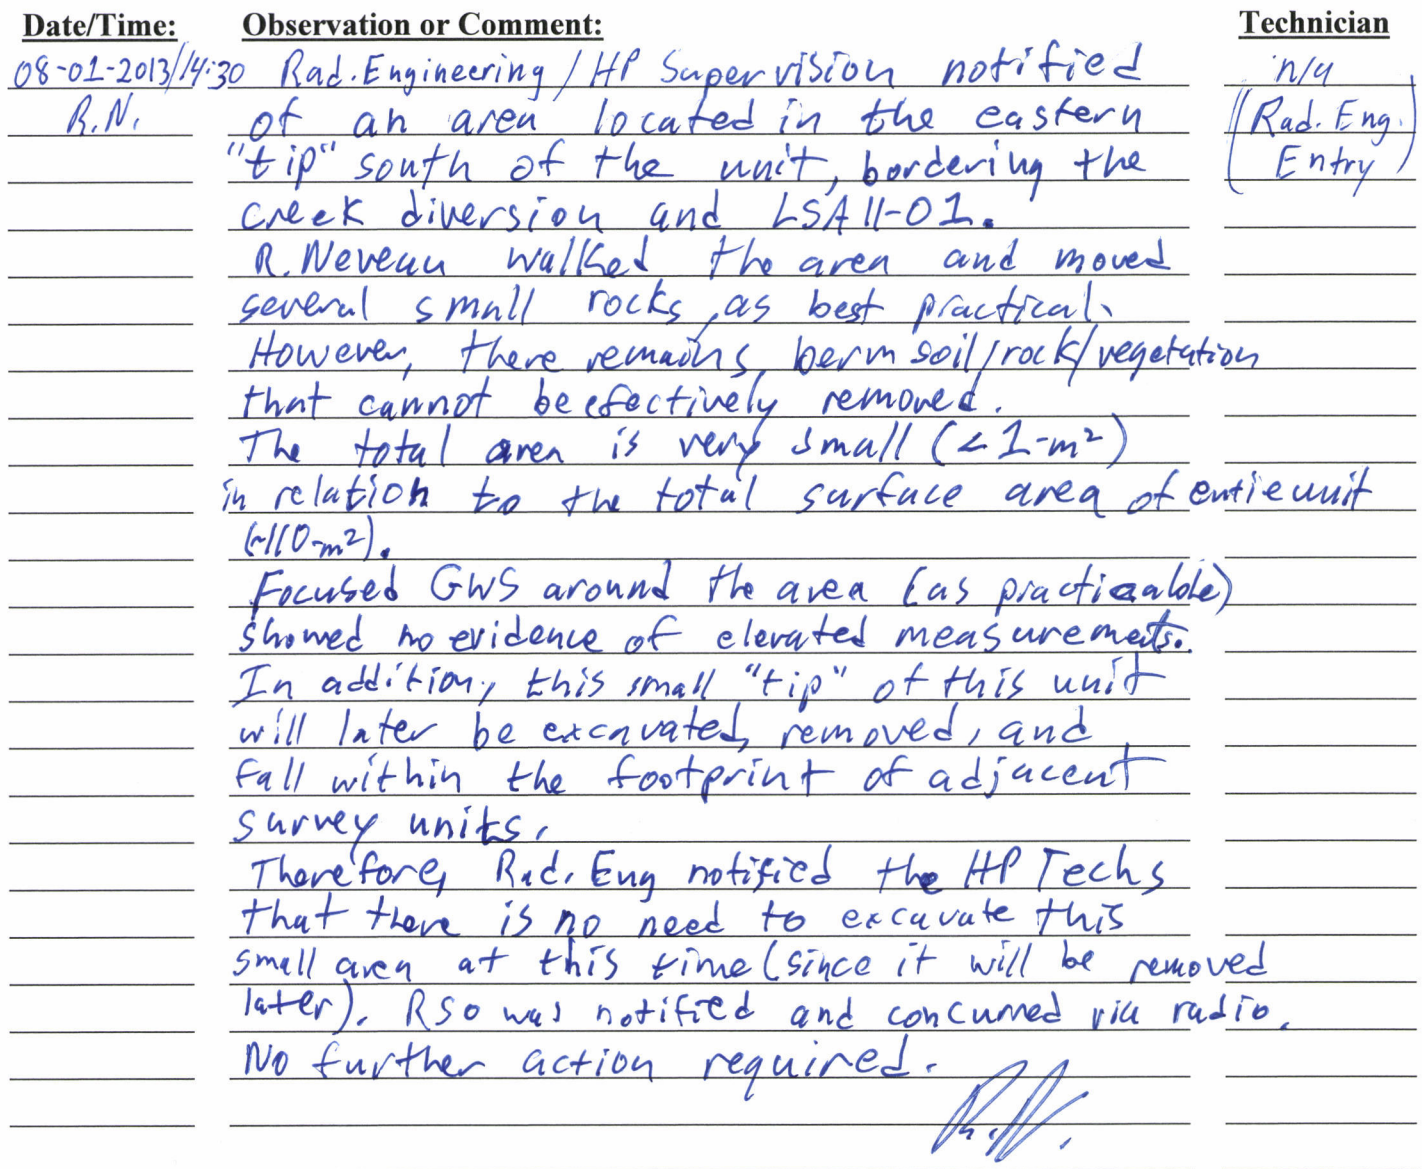 Date/Time: Observation or Comment: Technician
08-01-2013/14:30 Rad. Engineering / HP Supervision notified n/a
R.N. of an area located in the eastern (Rad. Eng.
"tip" south of the unit, bordering the Entry)
creek diversion and LSA 11-01.
R. Neveau walked the area and moved
several small rocks, as best practical.
However, there remains berm soil/rock/vegetation
that cannot be efectively removed.
The total area is very small (<1-m²)
in relation to the total surface area of entie unit
(~110-m²).
Focused GWS around the area (as practicable)
showed no evidence of elevated measurements.
In addition, this small "tip" of this unit
will later be excavated, removed, and
fall within the footprint of adjacent
survey units.
Therefore, Rad. Eng notified the HP Techs
that there is no need to excavate this
small area at this time (since it will be removed
later). RSO was notified and concurred via radio.
No further action required.
R.N.